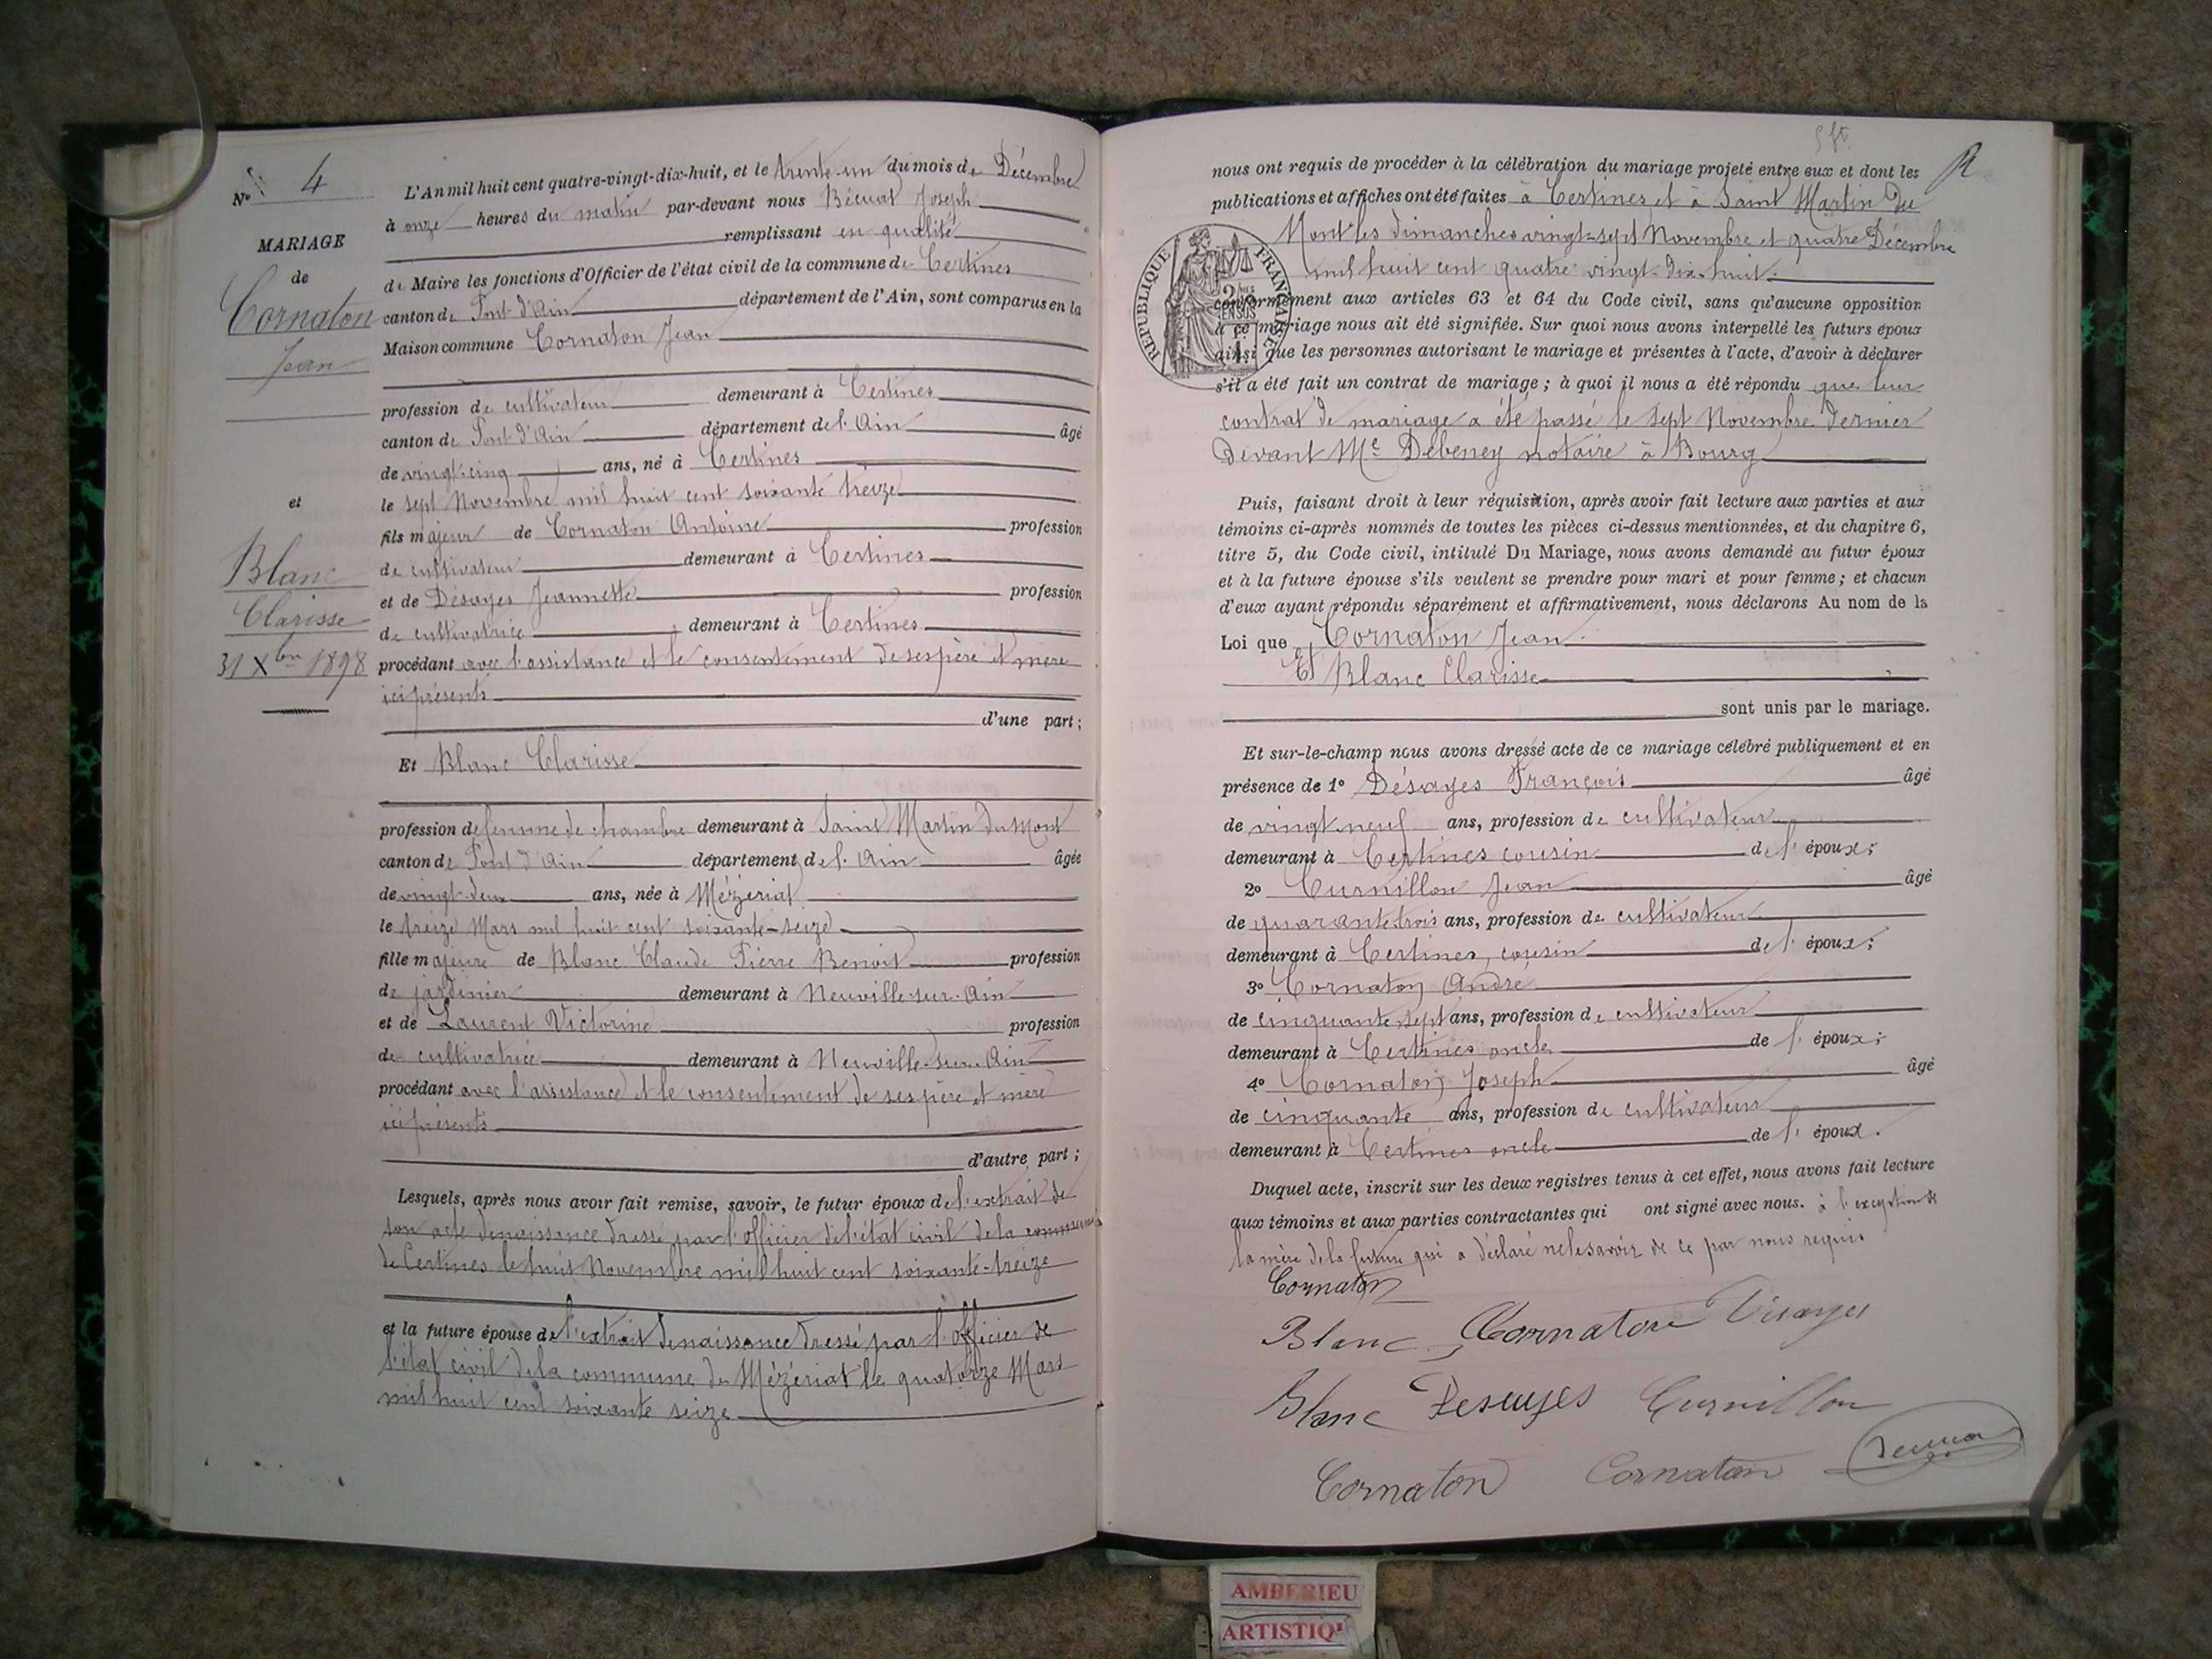 N° 4
MARIAGE
de
Cornaton
Jean
et
Blanc
Clarisse
31 Xbre 1898
L'An mil huit cent quatre-vingt-dix-huit, et le trente-un du mois de Décembre
à onze heures du matin par-devant nous Joseph
remplissant en qualité
de Maire les fonctions d'Officier de l'état civil de la commune de Certines
canton de Pont d'Ain département de l'Ain, sont comparus en la
Maison commune Cornaton Jean
profession de cultivateur demeurant à Certines
canton de Pont d'Ain département de l'Ain âgé
de vingt-cinq ans, né à Certines
le sept Novembre mil huit cent soixante treize
fils majeur de Cornaton Antoine profession
de cultivateur demeurant à Certines
et de Désayes Jeannette profession
de cultivatrice demeurant à Certines
procédant avec l'assistance et le consentement de ses père et mère
ici présents
d'une part;
Et Blanc Clarisse
profession de femme de chambre demeurant à Saint Martin du Mont
canton de Pont d'Ain département de l'Ain âgée
de vingt-deux ans, née à Mézériat
le treize Mars mil huit cent soixante-seize
fille majeure de Blanc Claude Pierre Benoit profession
de jardinier demeurant à Neuville-sur-Ain
et de Laurent Victorine profession
de cultivatrice demeurant à Neuville-sur-Ain
procédant avec l'assistance et le consentement de ses père et mère
ici présents
d'autre part;
Lesquels, après nous avoir fait remise, savoir, le futur époux de l'extrait de
son acte de naissance dressé par l'officier de l'état civil de la commune
de Certines le huit Novembre mil huit cent soixante-treize
et la future épouse de l'extrait de naissance dressé par l'officier de
l'état civil de la commune de Mézériat le quatorze Mars
mil huit cent soixante seize
nous ont requis de procéder à la célébration du mariage projeté entre eux et dont les
publications et affiches ont été faites à Certines et à Saint Martin du
Mont les dimanches vingt-sept Novembre et quatre Décembre
mil huit cent quatre-vingt-dix-huit
REPUBLIQUE FRANÇAISE
conformément aux articles 63 et 64 du Code civil, sans qu'aucune opposition
à ce mariage nous ait été signifiée. Sur quoi nous avons interpellé les futurs époux
ainsi que les personnes autorisant le mariage et présentes à l'acte, d'avoir à déclarer
s'il a été fait un contrat de mariage; à quoi il nous a été répondu que leur
contrat de mariage a été passé le sept Novembre dernier
devant Me Debeney notaire à Bourg
Puis, faisant droit à leur réquisition, après avoir fait lecture aux parties et aux
témoins ci-après nommés de toutes les pièces ci-dessus mentionnées, et du chapitre 6,
titre 5, du Code civil, intitulé Du Mariage, nous avons demandé au futur époux
et à la future épouse s'ils veulent se prendre pour mari et pour femme; et chacun
d'eux ayant répondu séparément et affirmativement, nous déclarons Au nom de la
Loi que Cornaton Jean
Et Blanc Clarisse
sont unis par le mariage.
Et sur-le-champ nous avons dressé acte de ce mariage célébré publiquement et en
présence de 1° Désayes François âgé
de vingt neuf ans, profession de cultivateur
demeurant à Certines cousin de l'époux;
2° Curnillon Jean âgé
de quarante trois ans, profession de cultivateur
demeurant à Certines, cousin de l'époux;
3° Cornaton André
de cinquante sept ans, profession de cultivateur
demeurant à Certines oncle de l'époux;
4° Cornaton Joseph âgé
de cinquante ans, profession de cultivateur
demeurant à Certines oncle de l'époux.
Duquel acte, inscrit sur les deux registres tenus à cet effet, nous avons fait lecture
aux témoins et aux parties contractantes qui ont signé avec nous. à l'exception de
la mère de la future qui a déclaré ne le savoir de ce par nous requis
Cornaton
Blanc Cornaton
Blanc Desayes Curnillon
Cornaton Cornaton
AMBERIEU
ARTISTIQ